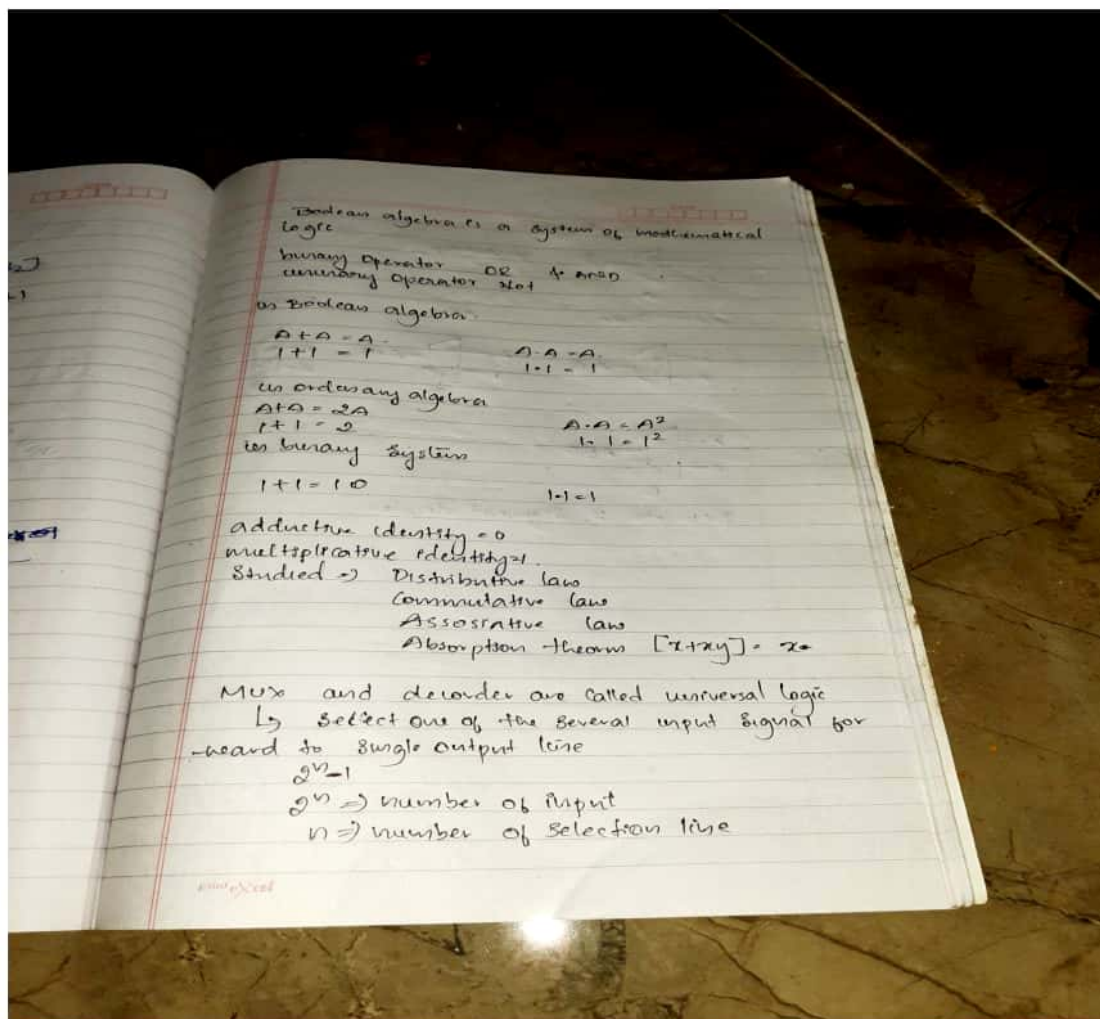 2]
Boolean algebra is a system of mathematical
logic
binary operator OR & AND
ununary operator Not
in Boolean algebra
A+A = A
1+1 = 1
A·A = A
1·1 = 1
in ordinary algebra
A+A = 2A
1+1 = 2
A·A = A²
1·1 = 1²
in binary system
1+1 = 10
1·1 = 1
adductive identity = 0
multiplicative identity = 1.
Studied => Distributive law
Commutative law
Assosiative law
Absorption theorm [x+xy] = x
Mux and decorder are called universal logic
↳ select one of the several input signal for
-ward to single output line
2ⁿ-1
2ⁿ => number of input
n => number of selection line